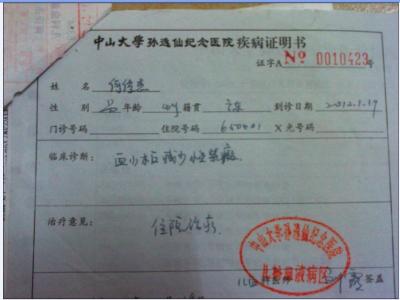 中山大学孙逸仙纪念医院疾病证明书
证字A № 0010423号
姓名
性别 年龄 籍贯 到诊日期 2012.1.19
门诊号码 住院号码 650401 X光号码
临床诊断: 血小板减少性紫癜
治疗意见: 住院治疗
中山大学孙逸仙纪念医院
儿科血液病区